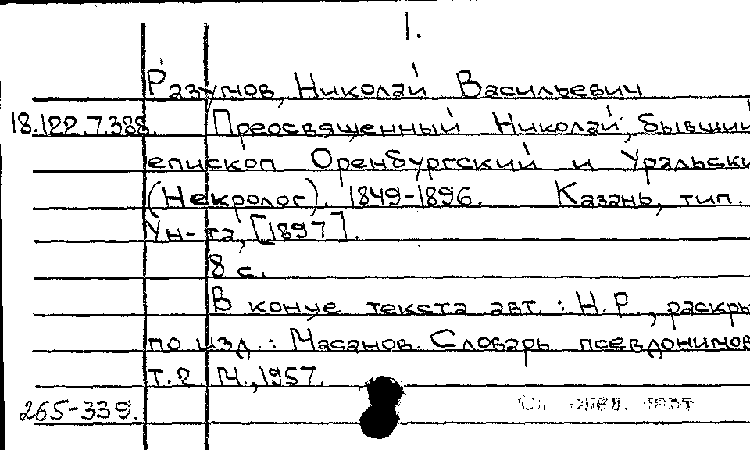 1.
Разумов, Николай Васильевич
18.122.7.388. Преосвященный Николай, бывший
епископ Оренбургский и Уральски
(Некролог). 1849-1896. Казань, тип.
Ун-та, [1897].
8 с.
В конце текста авт.: Н.Р., раскры
по изд.: Масанов. Словарь псевдонимов
Т.2 М., 1957.
265-339.